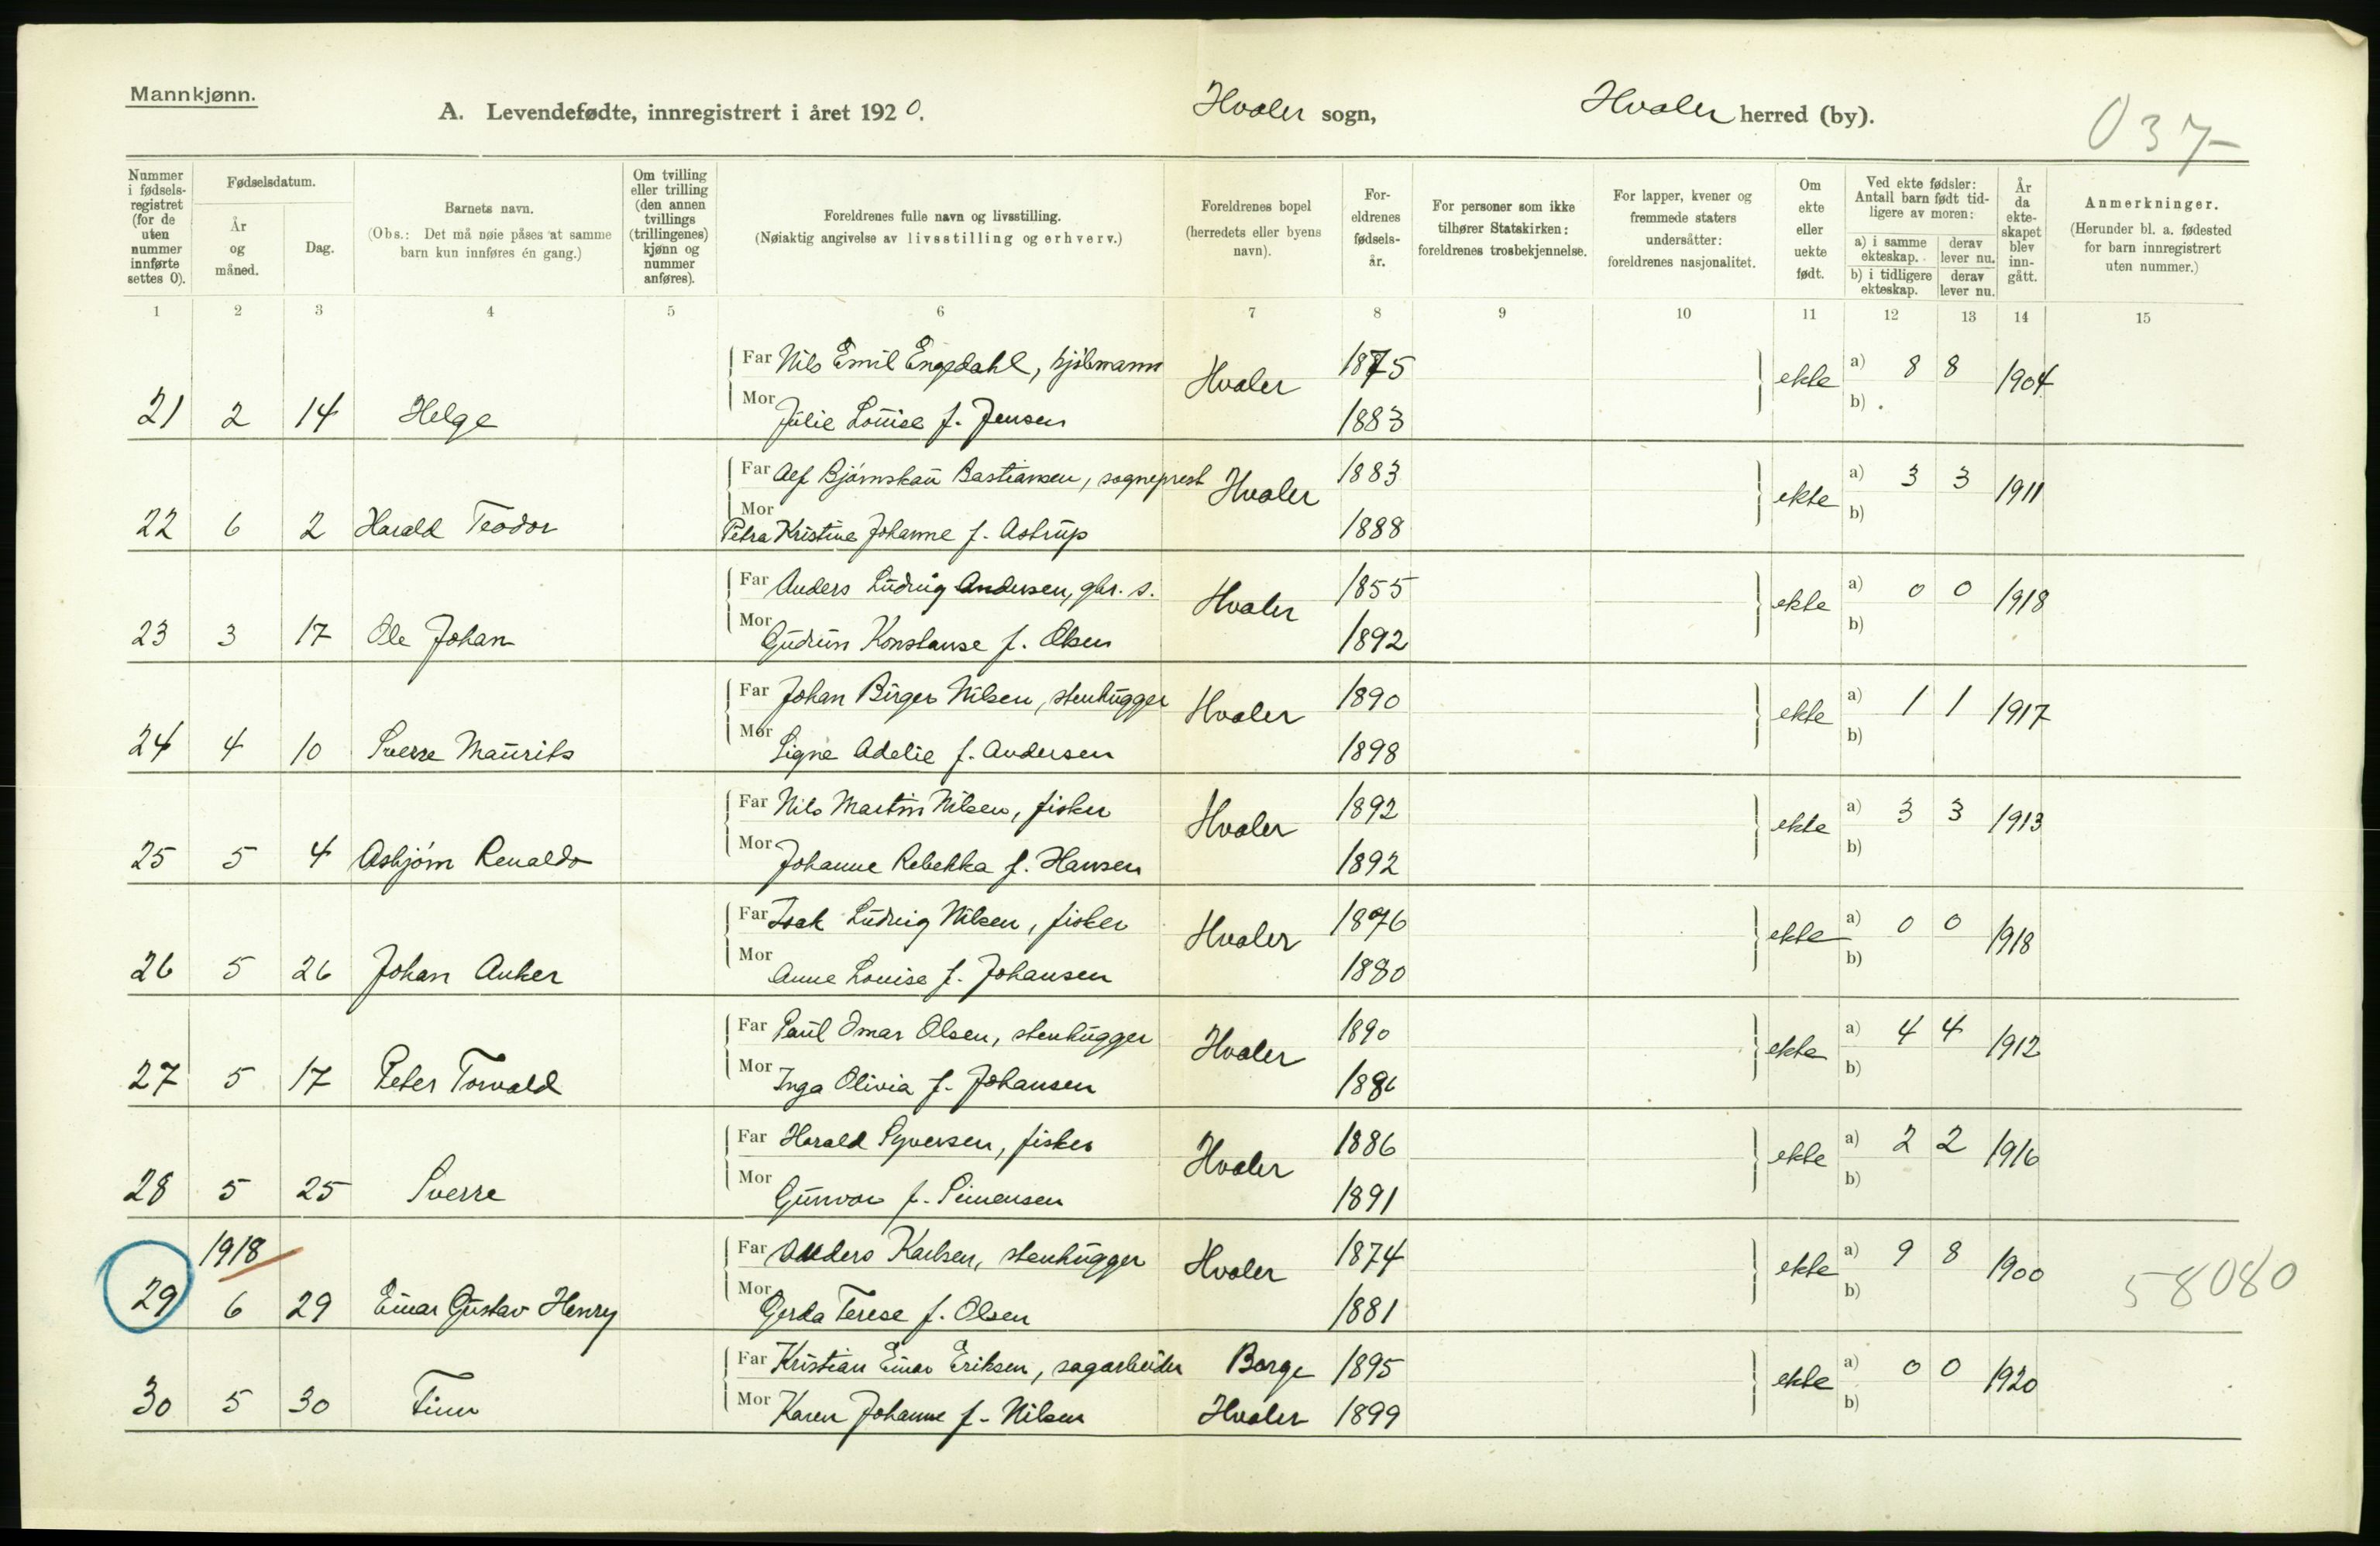 Mannkjønn.
A. Levendefødte, innregistrert i året 1920.
Hvaler sogn,
Hvaler herred (by).
037-
Nummer i fødsels-registret (for de uten nummer innførte settes 0).
Fødselsdatum.
År og måned.
Dag.
Barnets navn.
(Obs.: Det må nøie påses at samme barn kun innføres én gang.)
Om tvilling eller trilling (den annen tvillings (trillingenes) kjønn og nummer anføres).
Foreldrenes fulle navn og livsstilling.
(Nøiaktig angivelse av livsstilling og erhverv.)
Foreldrenes bopel (herredets eller byens navn).
For-eldrenes fødsels-år.
For personer som ikke tilhører Statskirken: foreldrenes trosbekjennelse.
For lapper, kvener og fremmede staters undersåtter: foreldrenes nasjonalitet.
Om ekte eller uekte født.
Ved ekte fødsler: Antall barn født tid-ligere av moren:
a) i samme ekteskap.
derav lever nu.
b) i tidligere ekteskap.
derav lever nu.
År da ekte-skapet blev inn-gått.
Anmerkninger.
(Herunder bl. a. fødested for barn innregistrert uten nummer.)
1 2 3 4 5 6 7 8 9 10 11 12 13 14 15
Far Nils Emil Engedahl, Hvaler 1875 ekte a) 8 8 1904
21 2 14 Helge Mor Julie Louise f. Jensen 1883 b)
Far Alf Bjørnskau Bastiansen, sogneprest Hvaler 1883 ekte a) 3 3 1911
22 6 2 Harald Teodor Mor Petra Kristine Johanne f. Astrup 1888 b)
Far Anders Ludvig Andersen, gbr. s. Hvaler 1855 ekte a) 0 0 1918
23 3 17 Ole Johan Mor Gudrun Konstanse f. Olsen 1892 b)
Far Johan Birger Nilsen, stenhugger Hvaler 1890 ekte a) 1 1 1917
24 4 10 Sverre Maurits Mor Signe Adelie f. Andersen 1898 b)
Far Nils Martin Nilsen, fisker Hvaler 1892 ekte a) 3 3 1913
25 5 4 Asbjørn Renaldo Mor Johanne Rebekka f. Hansen 1892 b)
Far Isak Ludvig Nilsen, fisker Hvaler 1876 ekte a) 0 0 1918
26 5 26 Johan Anker Mor Anne Louise f. Johansen 1880 b)
Far Paul Omar Olsen, stenhugger Hvaler 1890 ekte a) 4 4 1912
27 5 17 Peter Torvald Mor Inga Olivia f. Johansen 1886 b)
Far Harald Syversen, fisker Hvaler 1886 ekte a) 2 2 1916
28 5 25 Sverre Mor Gunvor f. Simensen 1891 b)
1918 Far Anders Karlsen, stenhugger Hvaler 1874 ekte a) 9 8 1900 58080
29 6 29 Einar Gustav Henry Mor Gerda Terese f. Olsen 1881 b)
Far Kristian Einar Eriksen, sagarbeider Borge 1895 ekte a) 0 0 1920
30 5 30 Finn Mor Karen Johanne f. Nilsen Hvaler 1899 b)